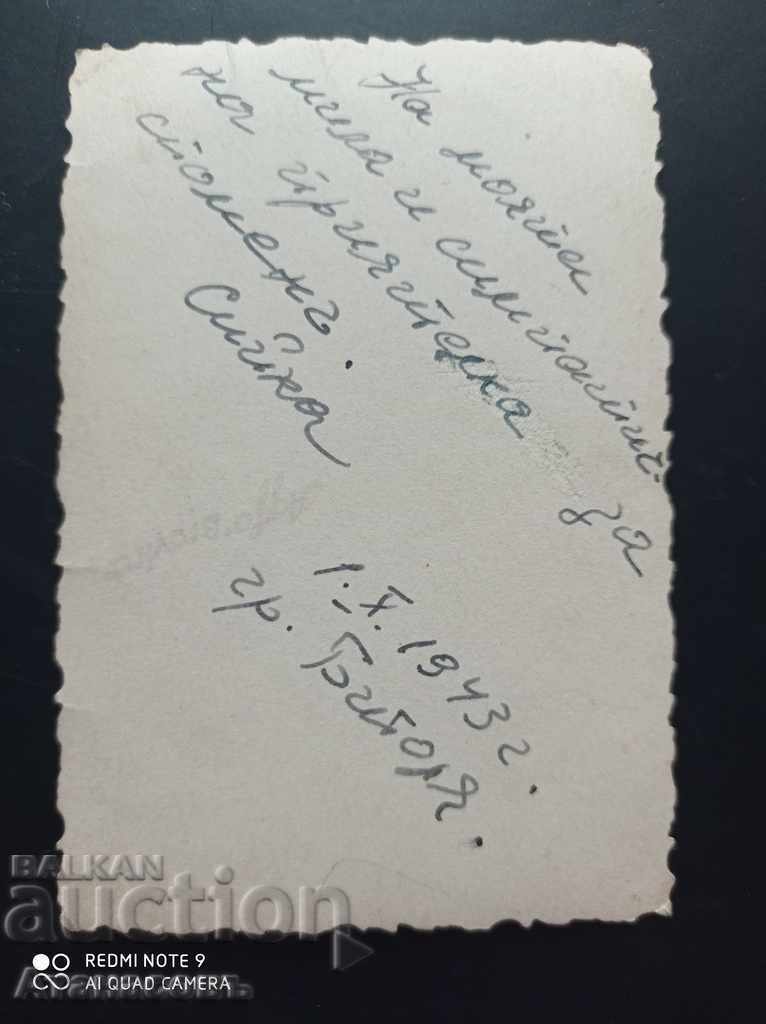 На моята
мила и симпатич-
на приятелка за
споменъ.
Сийка
1. X. 1943 г.
гр. Битоля.
BALKAN
auction
REDMI NOTE 9
AI QUAD CAMERA